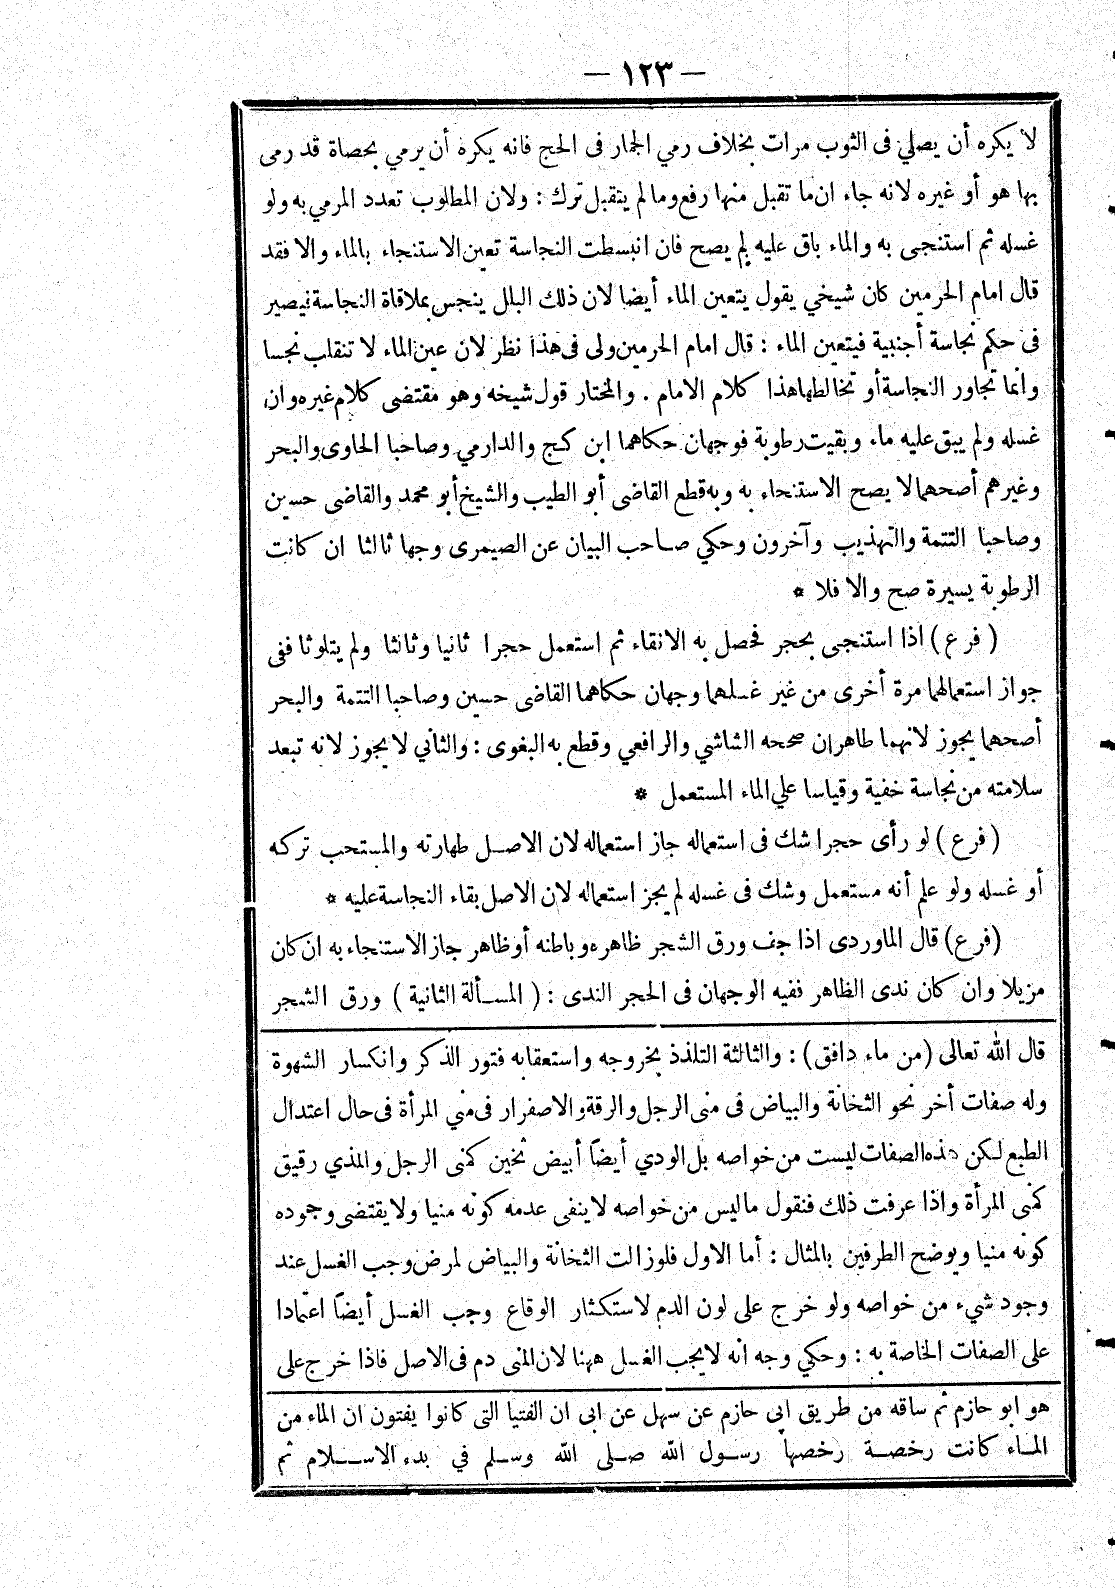 — ١٢٣ —
لا يكره أن يصلي فى الثوب مرات بخلاف رمي الجمار فى الحج فانه يكره أن يرمي بحصاة قد رمى
بها هو أو غيره لانه جاء ان ما تقبل منها رفع وما لم يتقبل ترك : ولان المطلوب تعدد المرمي به ولو
غسله ثم استنجى به والماء باق عليه لم يصح فان انبسطت النجاسة تعين الاستنجاء بالماء والا فقد
قال امام الحرمين كان شيخي يقول يتعين الماء أيضا لان ذلك البلل ينجس بملاقاة النجاسة فيصير
فى حكم نجاسة أجنبية فيتعين الماء : قال امام الحرمين ولى فى هذا نظر لان عين الماء لا تنقلب نجسا
وانما تجاور النجاسة أو تخالطها هذا كلام الامام . والمختار قول شيخه وهو مقتضى كلام غيره وان
غسله ولم يبق عليه ماء وبقيت رطوبة فوجهان حكاهما ابن كج والدارمي وصاحبا الحاوى والبحر
وغيرهم أصحهما لا يصح الاستنجاء به وبه قطع القاضى أبو الطيب والشيخ أبو محمد والقاضى حسين
وصاحبا التتمة والتهذيب وآخرون وحكي صاحب البيان عن الصيمرى وجها ثالثا ان كانت
الرطوبة يسيرة صح والا فلا *
( فرع ) اذا استنجى بحجر فحصل به الانقاء ثم استعمل حجرا ثانيا وثالثا ولم يتلوثا ففى
جواز استعمالهما مرة أخرى من غير غسلهما وجهان حكاهما القاضى حسين وصاحبا التتمة والبحر
أصحهما يجوز لانهما طاهران صححه الشاشي والرافعي وقطع به البغوى : والثاني لا يجوز لانه تبعد
سلامته من نجاسة خفية وقياسا علي الماء المستعمل *
( فرع ) لو رأى حجرا شك فى استعماله جاز استعماله لان الاصل طهارته والمستحب تركه
أو غسله ولو علم أنه مستعمل وشك فى غسله لم يجز استعماله لان الاصل بقاء النجاسة عليه *
( فرع ) قال الماوردى اذا جف ورق الشجر ظاهره وباطنه أو ظاهر جاز الاستنجاء به ان كان
مزيلا وان كان ندى الظاهر ففيه الوجهان فى الحجر الندى : ( المسألة الثانية ) ورق الشجر
قال الله تعالى ( من ماء دافق ) : والثالثة التلذذ بخروجه واستعقابه فتور الذكر وانكسار الشهوة
وله صفات أخر نحو الثخانة والبياض فى منى الرجل والرقة والاصفرار فى مني المرأة فى حال اعتدال
الطبع لكن هذه الصفات ليست من خواصه بل الودي أيضاً أبيض ثخين كمنى الرجل والمذي رقيق
كمنى المرأة واذا عرفت ذلك فنقول ما ليس من خواصه لا ينفى عدمه كونه منيا ولا يقتضى وجوده
كونه منيا ويوضح الطرفين بالمثال : أما الاول فلو زالت الثخانة والبياض لمرض وجب الغسل عند
وجود شيء من خواصه ولو خرج على لون الدم لاستكثار الوقاع وجب الغسل أيضاً اعتمادا
على الصفات الخاصة به : وحكي وجه انه لا يجب الغسل ههنا لان المنى دم فى الاصل فاذا خرج على
هو ابو حازم ثم ساقه من طريق ابى حازم عن سهل عن ابى ان الفتيا التى كانوا يفتون ان الماء من
الماء كانت رخصة رخصها رسول الله صلى الله وسلم في بدء الاسلام ثم